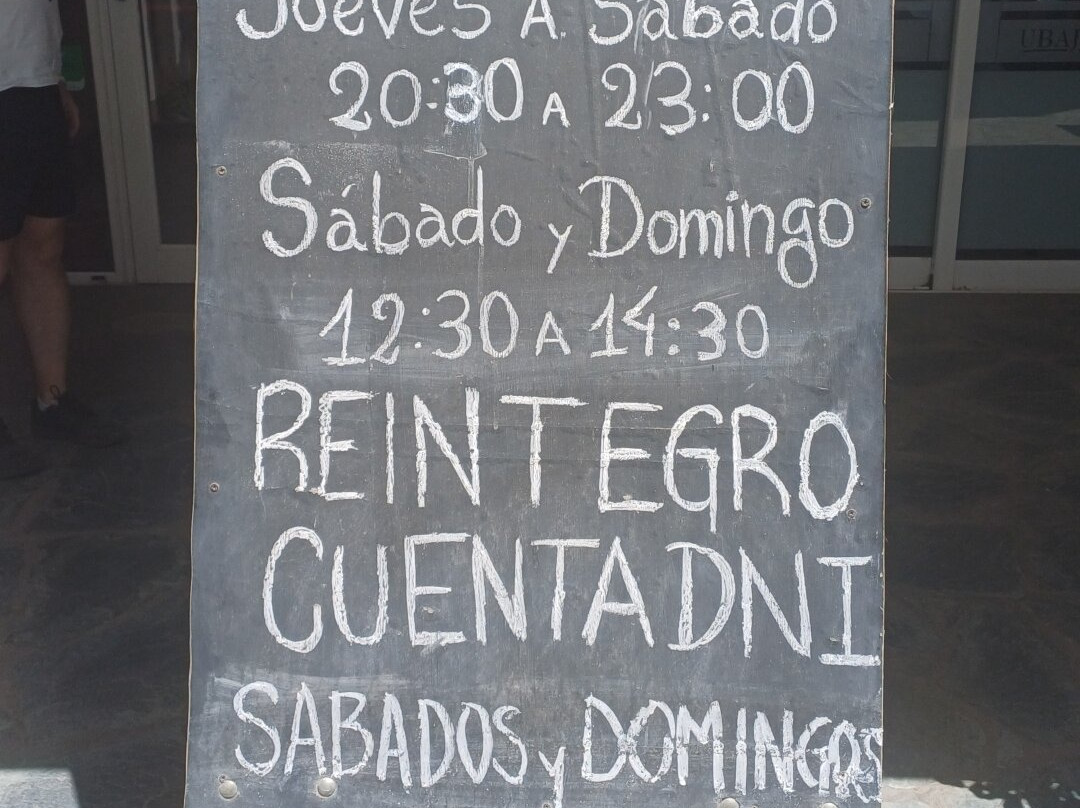 Jueves A Sábado
20:30 A 23:00
Sábado y Domingo
12:30 A 14:30
REINTEGRO
CUENTADNI
SABADOS y DOMINGOS